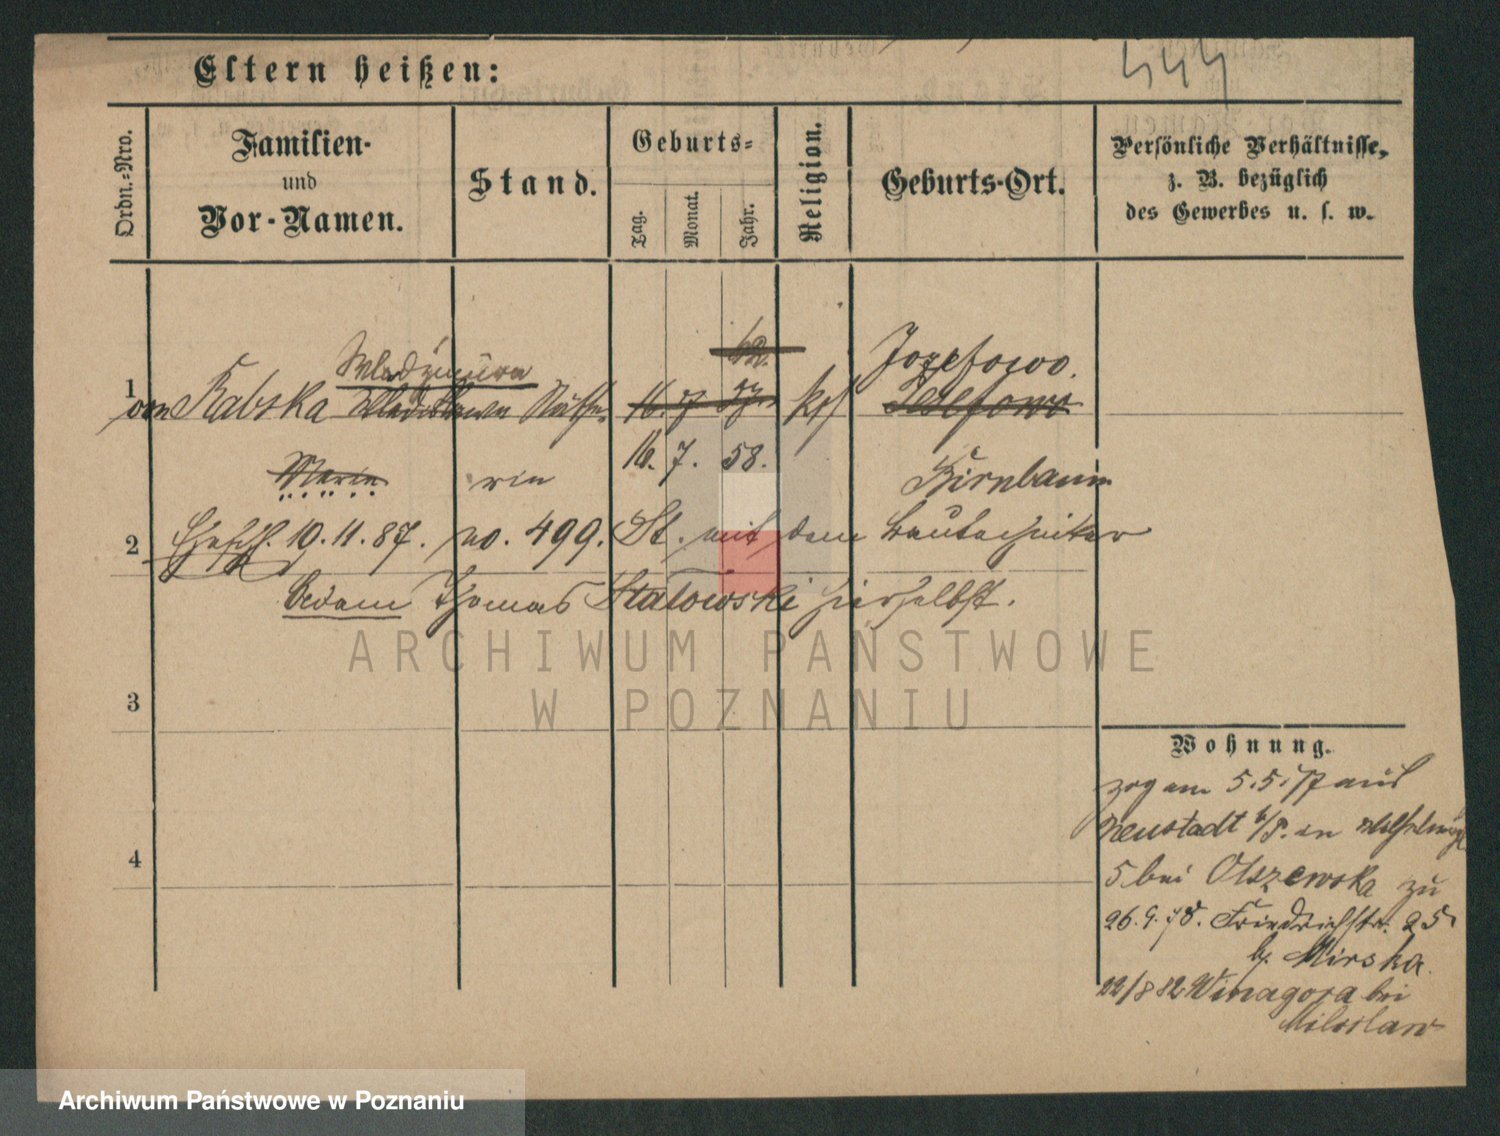 Eltern heißen:
Ordn.-Nro.
Familien-
und
Vor-Namen.
Stand.
Geburts-
Tag.
Monat.
Jahr.
Religion.
Geburts-Ort.
Persönliche Verhältnisse,
z. B. bezüglich
des Gewerbes u. s. w.
62.
Jozefowo.
1
von Rabska
16. 7 57.
16. 7. 58.
Marie
rin
Birnbaum
2
19. 11. 87. no. 499. St. mit dem Bautechniker
Adam Thomas Statowski hierselbst.
ARCHIWUM PAŃSTWOWE
W POZNANIU
3
Wohnung.
zog am 5.5.77 aus
Neustadt b/P. in
4
5 bei Olszewska zu
26.9.78. Friedrichstr. 25
b. Mirska.
22/8 82 Winagora bei
Miloslaw
Archiwum Państwowe w Poznaniu